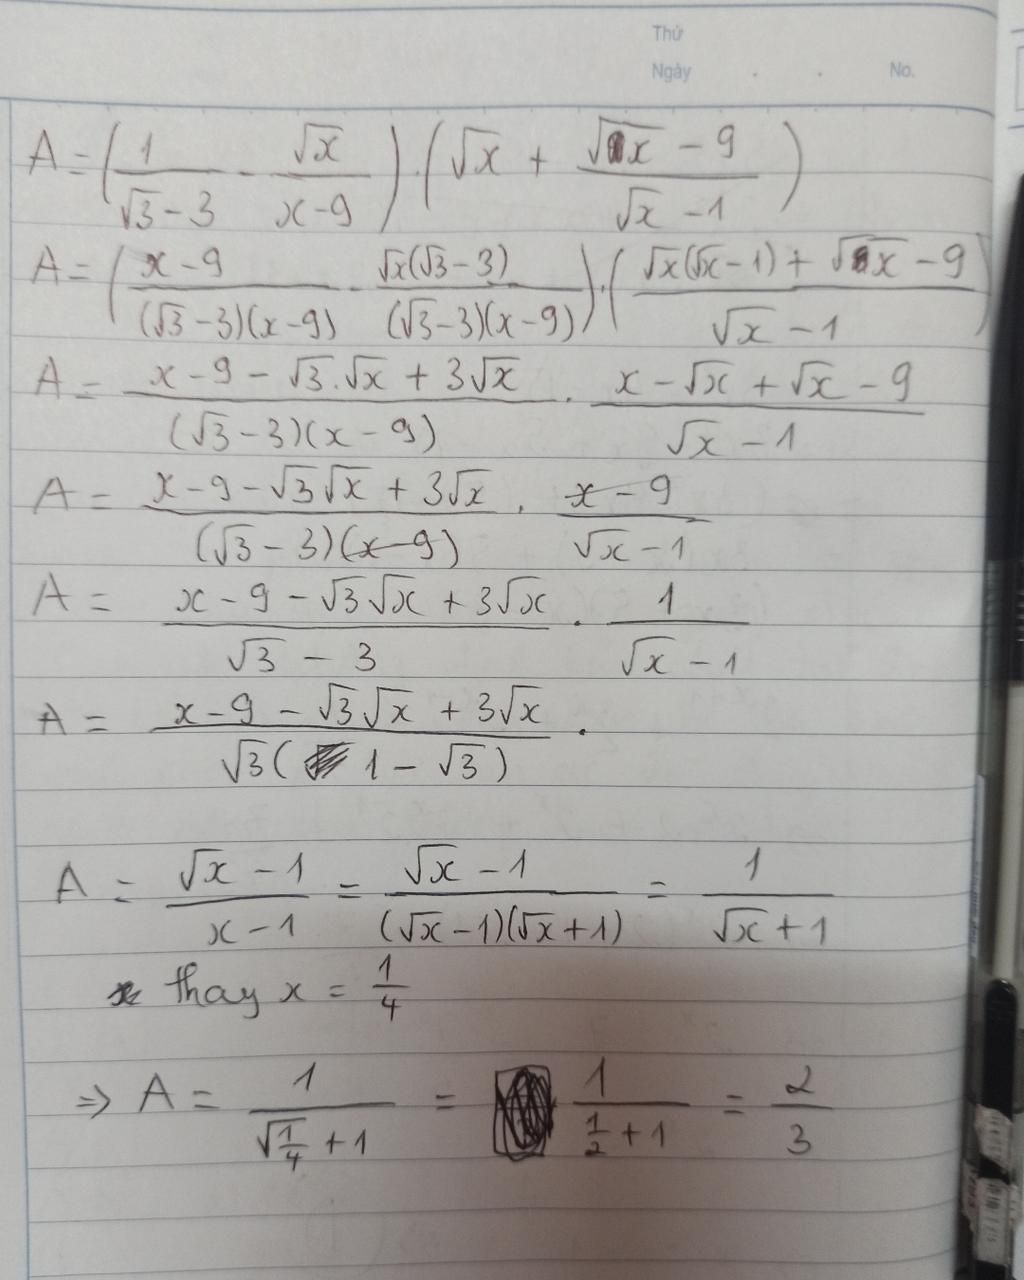 Thứ
Ngày . . No.
A = (1/(√3 - 3) - √x/(x - 9)) . (√x + (√x - 9)/(√x - 1))
A = ((x - 9)/((√3 - 3)(x - 9)) - √x(√3 - 3)/((√3 - 3)(x - 9))) . ((√x(√x - 1) + √x - 9)/(√x - 1))
A = (x - 9 - √3.√x + 3√x)/((√3 - 3)(x - 9)) . (x - √x + √x - 9)/(√x - 1)
A = (x - 9 - √3√x + 3√x)/((√3 - 3)(x - 9)) . (x - 9)/(√x - 1)
A = (x - 9 - √3√x + 3√x)/(√3 - 3) . 1/(√x - 1)
A = (x - 9 - √3√x + 3√x)/(√3(1 - √3)) .
A = (√x - 1)/(x - 1) = (√x - 1)/((√x - 1)(√x + 1)) = 1/(√x + 1)
thay x = 1/4
⇒ A = 1/(√(1/4) + 1) = 1/(1/2 + 1) = 2/3